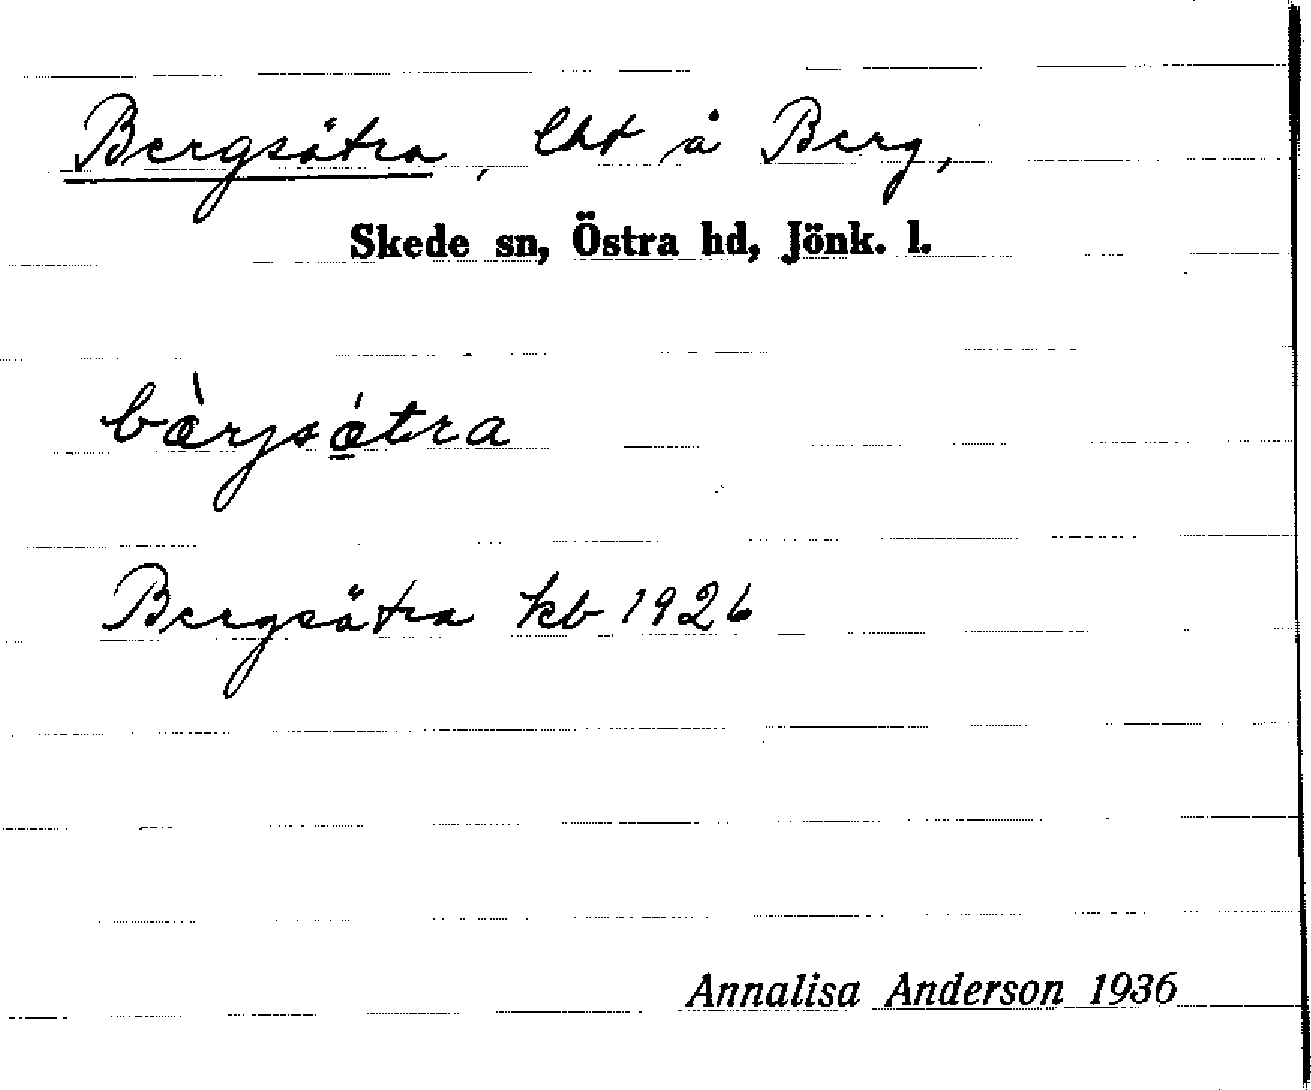 Bergsätra, lht å Berg,
Skede sn, Östra hd, Jönk. l.
bæ̀rjsǽtra
Bergsätra kb 1926
Annalisa Anderson 1936